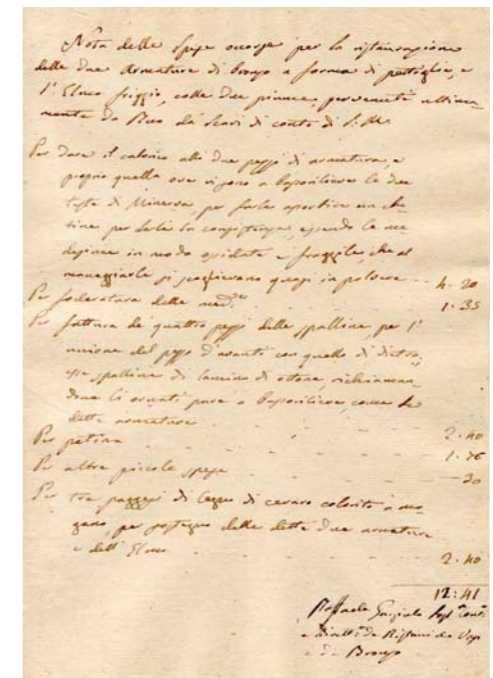 Nota delle spese occorse per la ristaurazione
delle due Armature di bronzo a forma di pettiglia, e
l'Elmo friggio, colle due pinne, pervenute ultima-
mente da Ruvo da' Scavi di conto di S. M.
Per dare il calorico alli due pezzi di armatura, e
proprio quella ove vi sono a bassorilievo le due
teste di Minerva, per farle
per darle la consistenza, essendo le me-
desime in modo ossidate e fraggile, che al
maneggiarle si scioglievano quasi in polvere -- 4. 20
Per foderatura delle med.e 1. 35
Per fattura de' quattro pezzi delle spalline, per l'
unione del pezzo d'avanti con quello di dietro,
spalline di lamina di ottone, richiaman-
done li ornati pure a bassorilievo, come le
dette armature 2. 40
Per patina 1. 76
Per altre piccole spese 30
Per tre di legno di colorito a mo-
gano, per sostegno delle dette due armature
e dell'Elmo 2. 40
12: 41
Raffaele
e de' Ristauri de' Vasi
e de' Bronzi